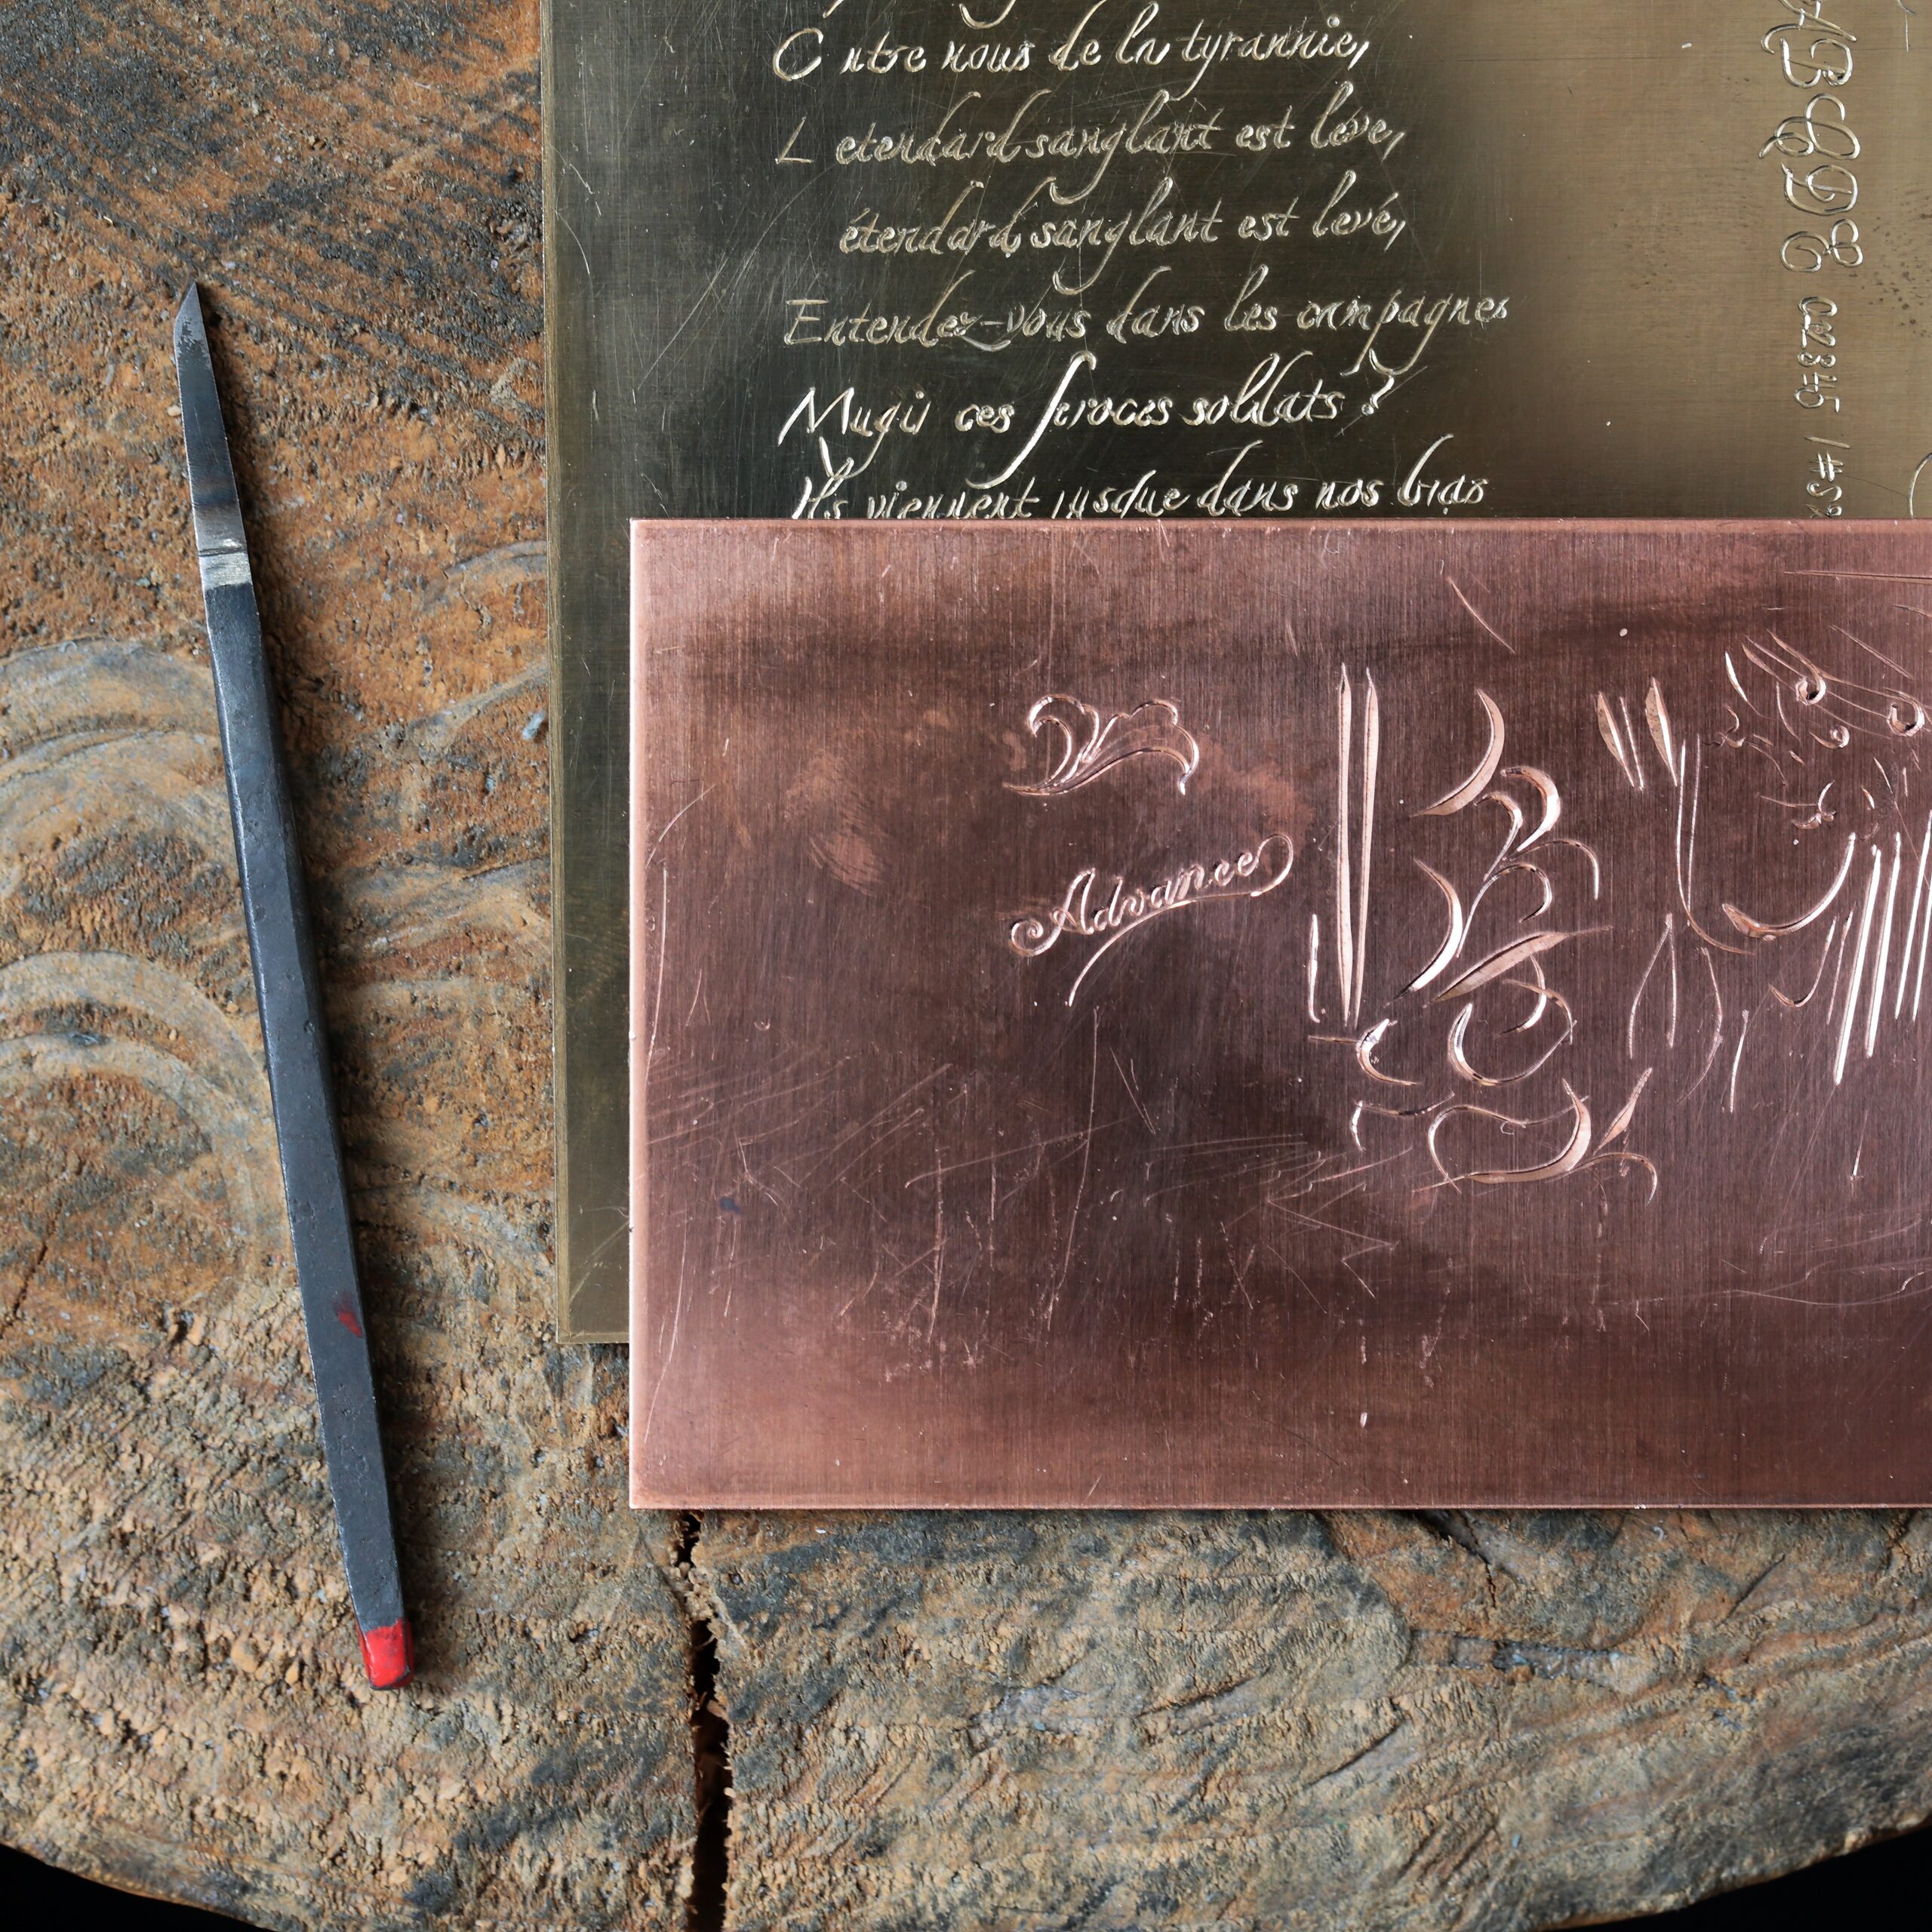 C ntre nous de la tyrannie,
L etendard sanglant est léve,
étendard sanglant est levé,
Entendez-vous dans les campagnes
Mugir ces feroces soldats?
Ils viennent jusque dans nos bras
Advance